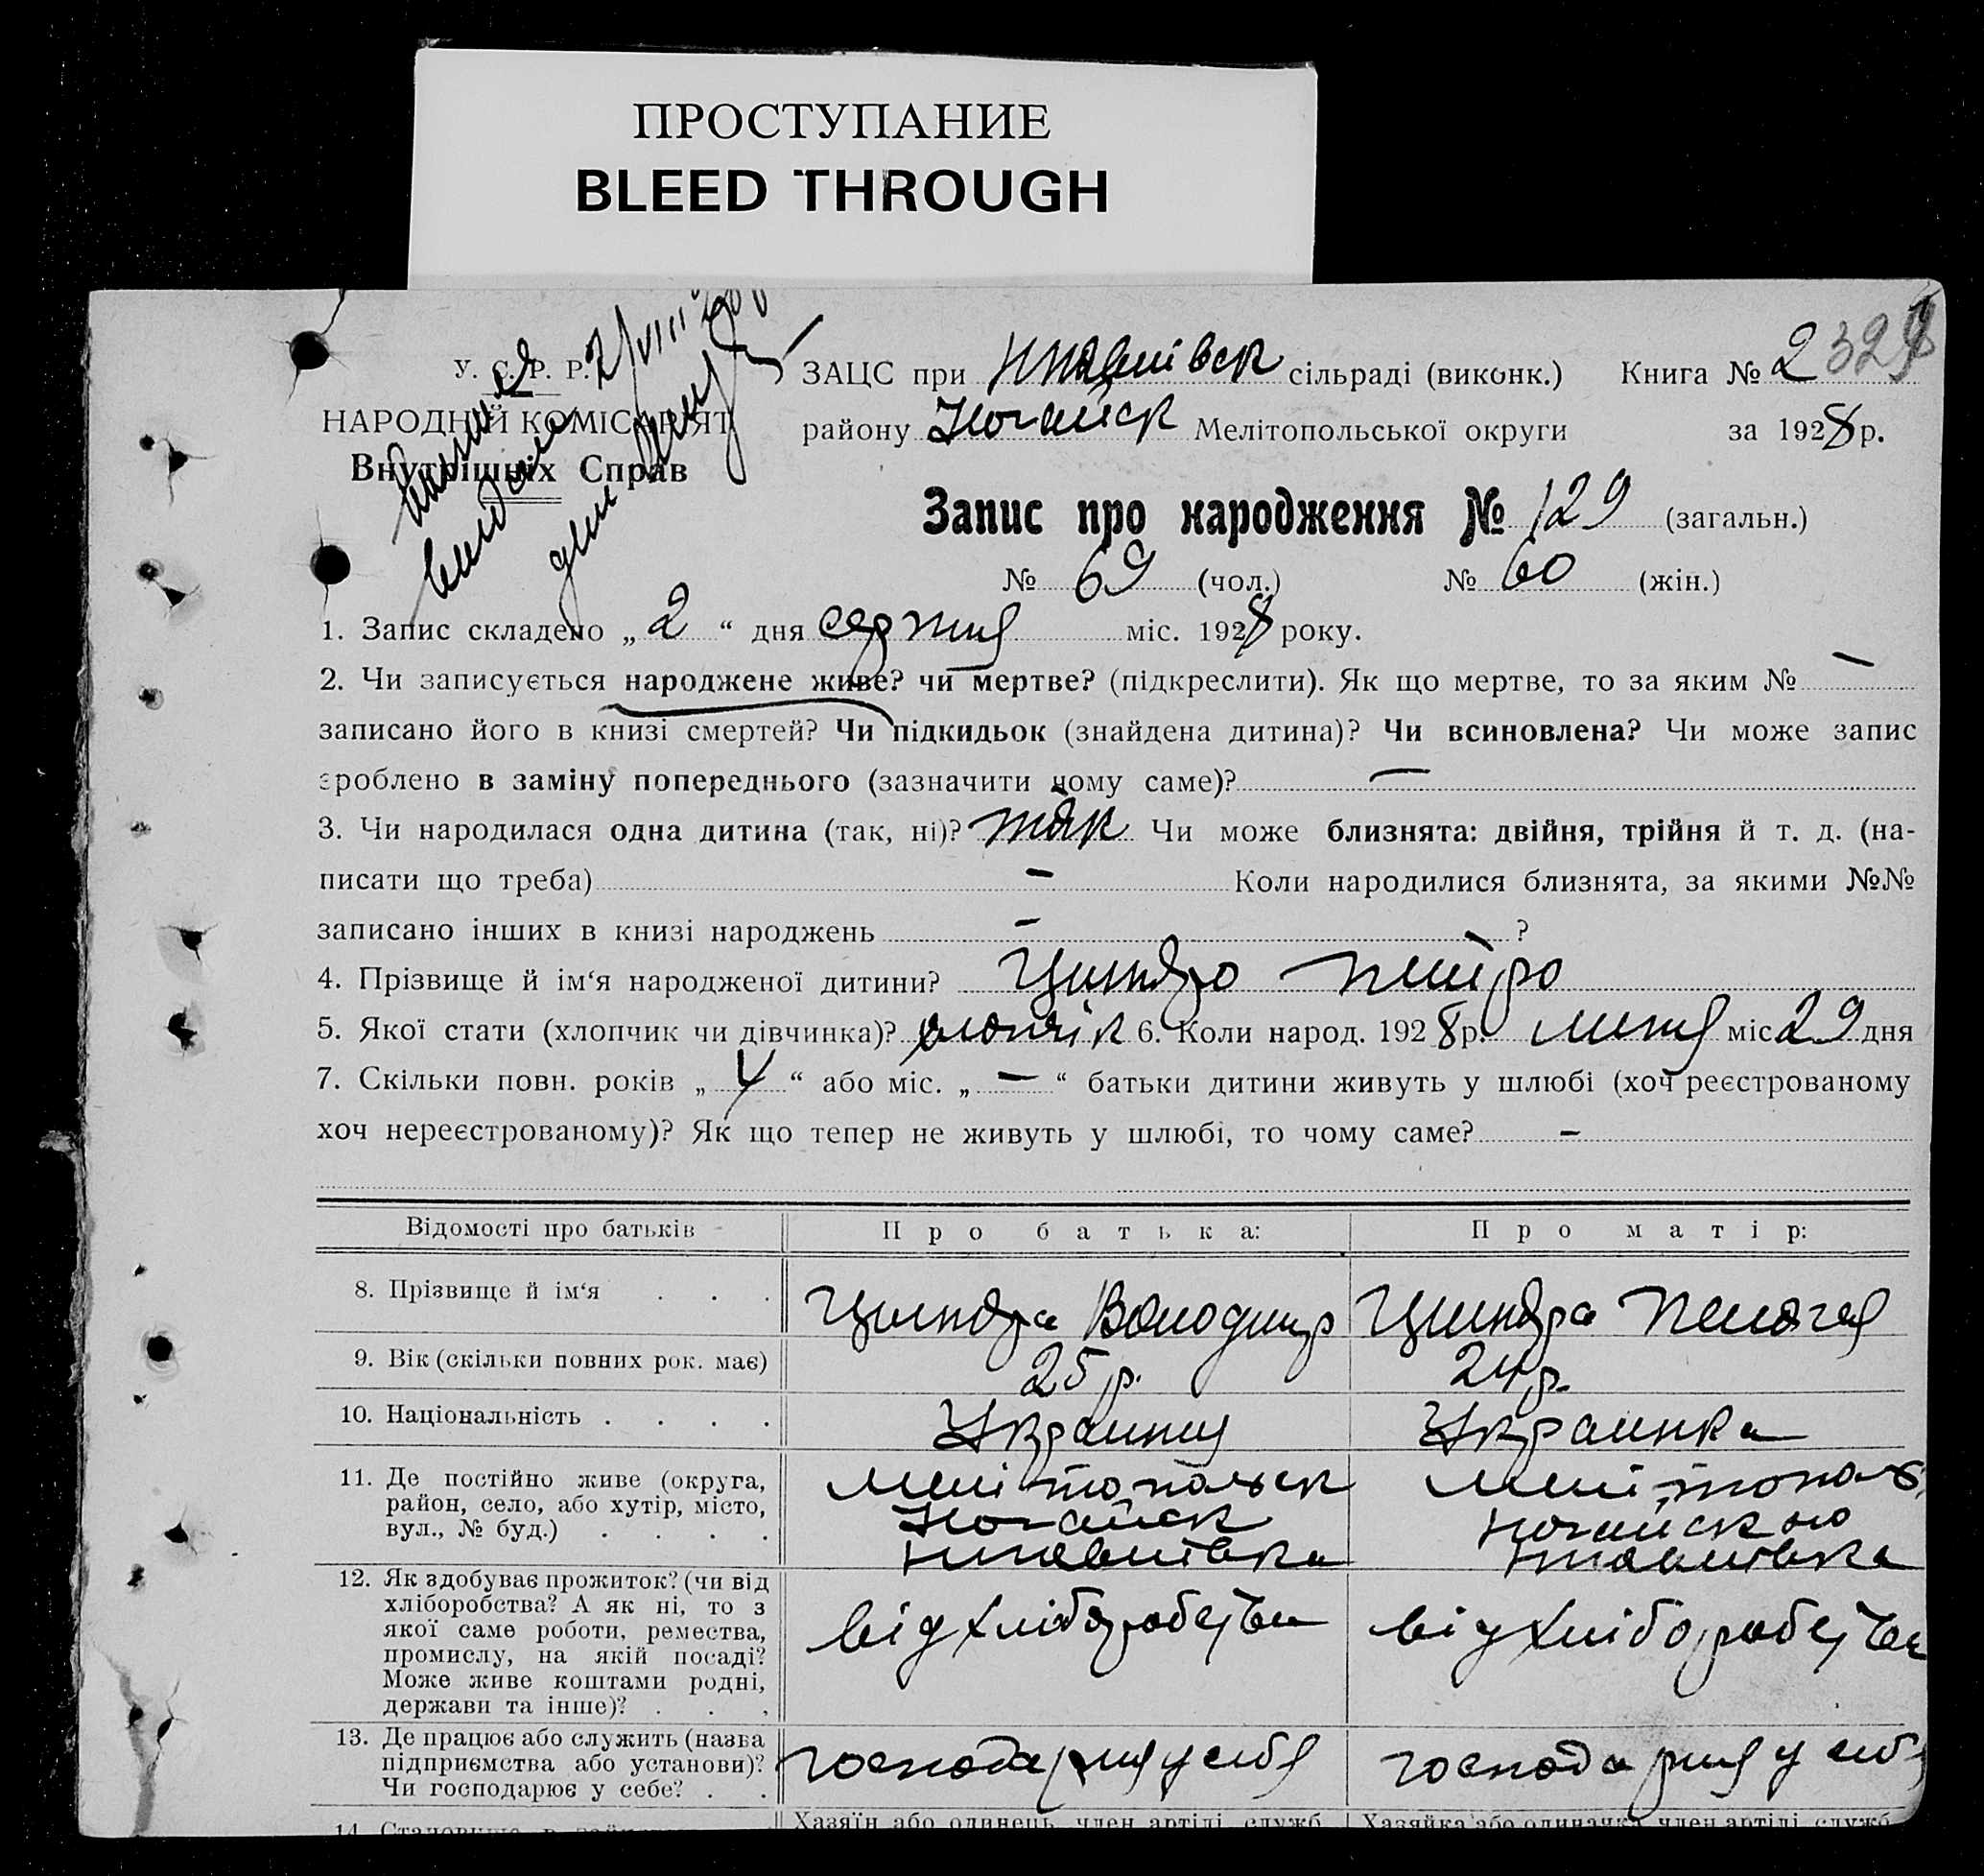 ПРОСТУПАНИЕ
BLEED THROUGH
У. С. Р. Р.
НАРОДНІЙ КОМІСАРІЯТ
Внутрішніх Справ
ЗАЦС при сільраді (виконк.) Книга № 2 329
району Ногайск Мелітопольської округи за 1928 р.
Запис про народження № 129 (загальн.)
№ 69 (чол.) № 60 (жін.)
1. Запис складено „ 2 “ дня серпня міс. 1928 року.
2. Чи записується народжене живе? чи мертве? (підкреслити). Як що мертве, то за яким № —
записано його в книзі смертей? Чи підкидьок (знайдена дитина)? Чи всиновлена? Чи може запис
зроблено в заміну попереднього (зазначити чому саме)? —
3. Чи народилася одна дитина (так, ні)? так Чи може близнята: двійня, трійня й т. д. (на-
писати що треба) — Коли народилися близнята, за якими №№
записано інших в книзі народжень — ?
4. Прізвище й ім‘я народженої дитини? Циндро Петро
5. Якої стати (хлопчик чи дівчинка)? хлопчік 6. Коли народ. 1928 р. липня міс 29 дня
7. Скільки повн. років „ 4 “ або міс. „ — “ батьки дитини живуть у шлюбі (хоч реєстрованому
хоч нереєстрованому)? Як що тепер не живуть у шлюбі, то чому саме? —
Відомості про батьків Про батька: Про матір:
8. Прізвище й ім‘я . . . Циндра Володимир Циндра Пелагея
9. Вік (скільки повних рок. має) 25 р. 24 р.
10. Національність . . . . Украинец Украинка
11. Де постійно живе (округа, Мелітопольск Мелітополь
район, село, або хутір, місто, Ногайск Ногайского
вул., № буд.) . . . .
12. Як здобуває прожиток? (чи від
хліборобства? А як ні, то з
якої саме роботи, ремества, від хліборобства від хліборобства
промислу, на якій посаді?
Може живе коштами родні,
держави та інше)? . . .
13. Де працює або служить (назва
підприємства або установи)? господарня у себя господарня у себя
Чи господарює у себе? . .
14. Становище в
Хазяїн або одинець, член артілі, служб. Хазяйка або одиначка, член артілі, служб.